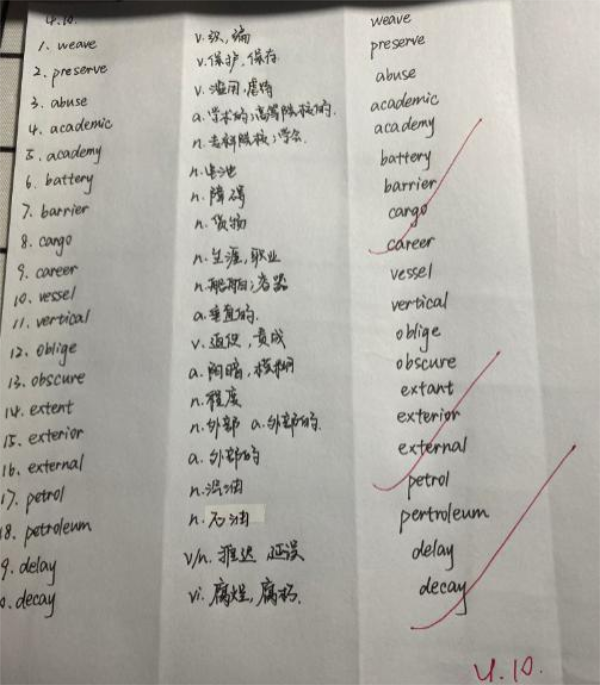 4.10. weave
1. weave v.织,编 preserve
2. preserve v.保护,保存 abuse
3. abuse v.滥用,虐待 academic
4. academic a.学术的;高等院校的. academy
5. academy n.专科院校;学会. battery
6. battery n.电池 barrier
7. barrier n.障碍 cargo
8. cargo n.货物 career
9. career n.生涯,职业 vessel
10. vessel n.船舶;容器 vertical
11. vertical a.垂直的. oblige
12. oblige v.迫使,责成 obscure
13. obscure a.阴暗,模糊 extant
14. extent n.程度 exterior
15. exterior n.外部 a.外部的. external
16. external a.外部的 petrol
17. petrol n.汽油 pertroleum
18. petroleum n.石油 delay
9. delay v/n.推迟 延误 decay
0. decay vi.腐烂,腐朽.
4.10.